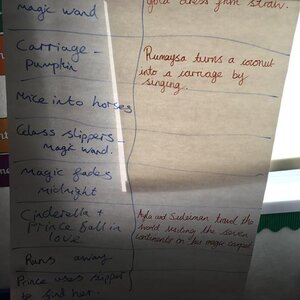 magic wand
gold dress from straw.
Carriage -
pumpkin
Rumaysa turns a coconut
into a carriage by
singing.
Mice into horses
Glass slippers -
magic wand.
Magic fades
midnight
Cinderella +
Prince fall in
love
Ayla and Suleiman travel the
world visiting the seven
continents on their magic carpet
Runs away
Prince uses slipper
to find her.